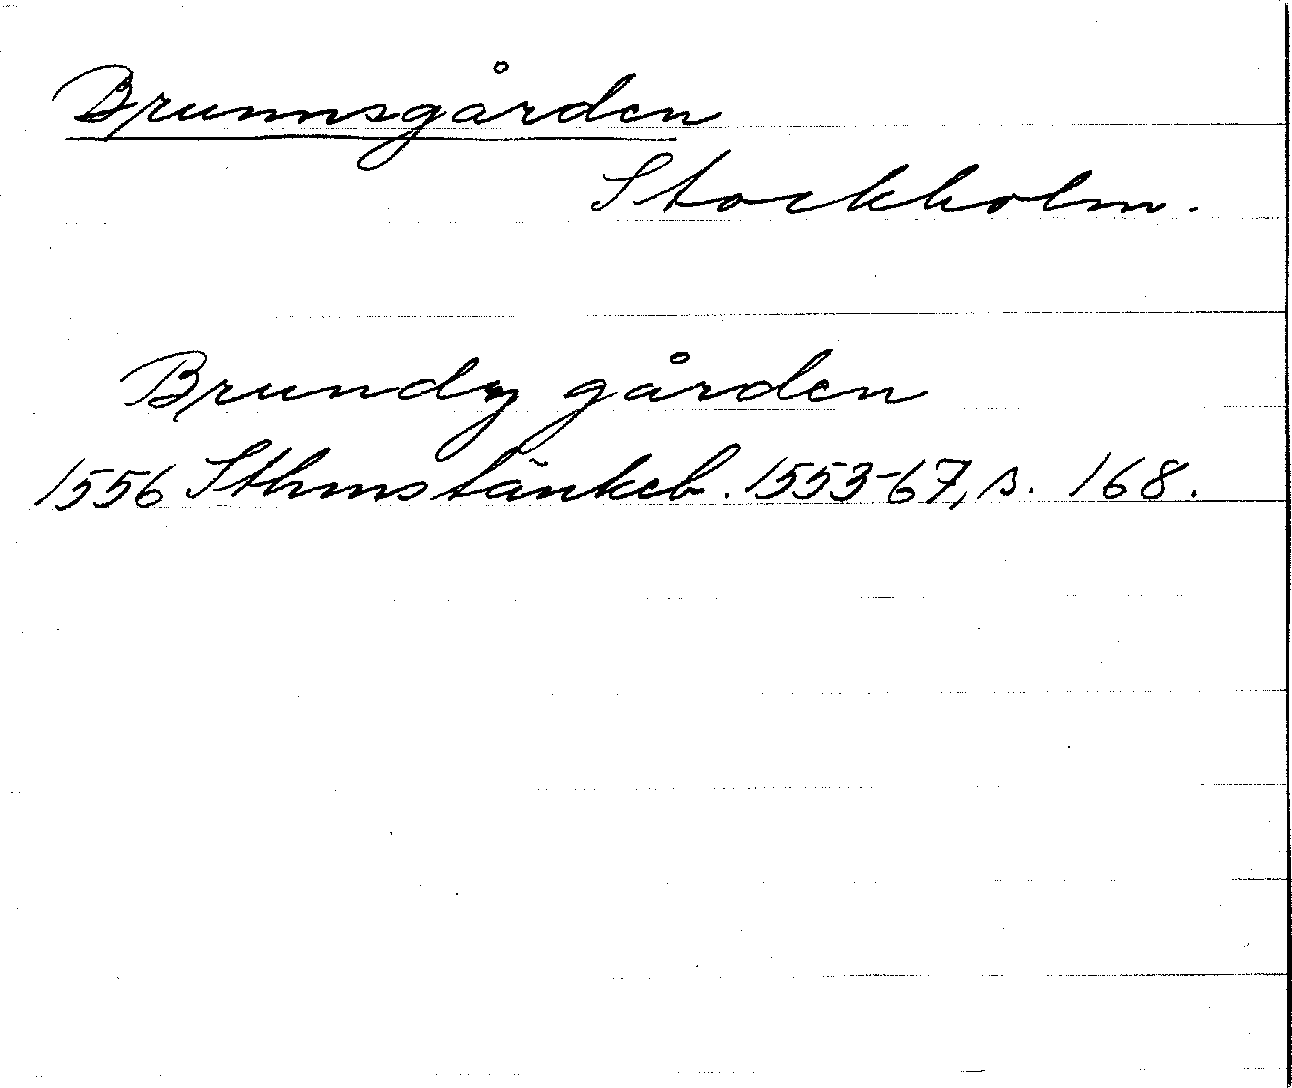 Brunnsgården
Stockholm.
Brundz gården
1556 Sthms tänkeb. 1553-67, s. 168.